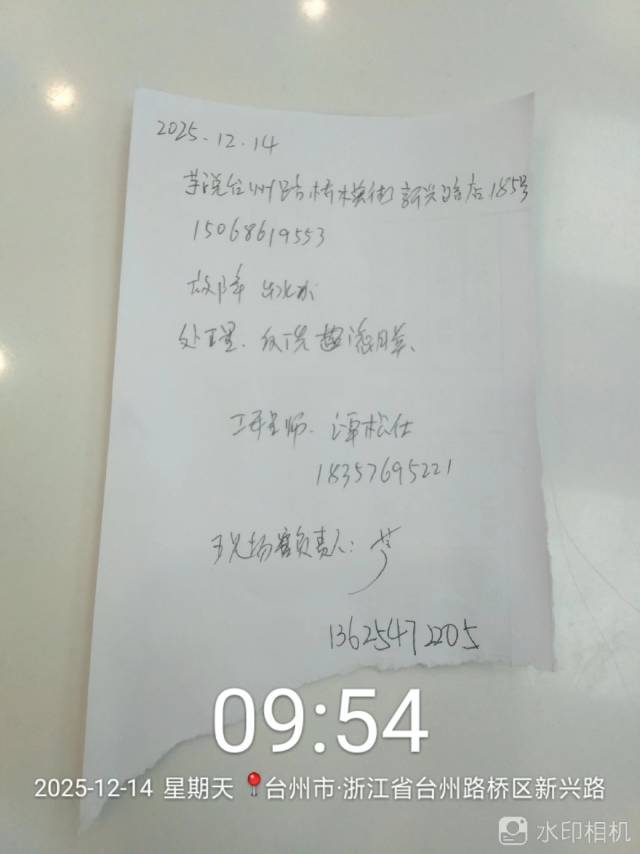 2025.12.14
芋说台州路桥横街新兴路店185号
15068619553
故障 出水
处理.反洗超滤膜、
工程师.谭松仕
18357695221
现场负责人:
13625472205
09:54
2025-12-14 星期天 台州市·浙江省台州路桥区新兴路
水印相机